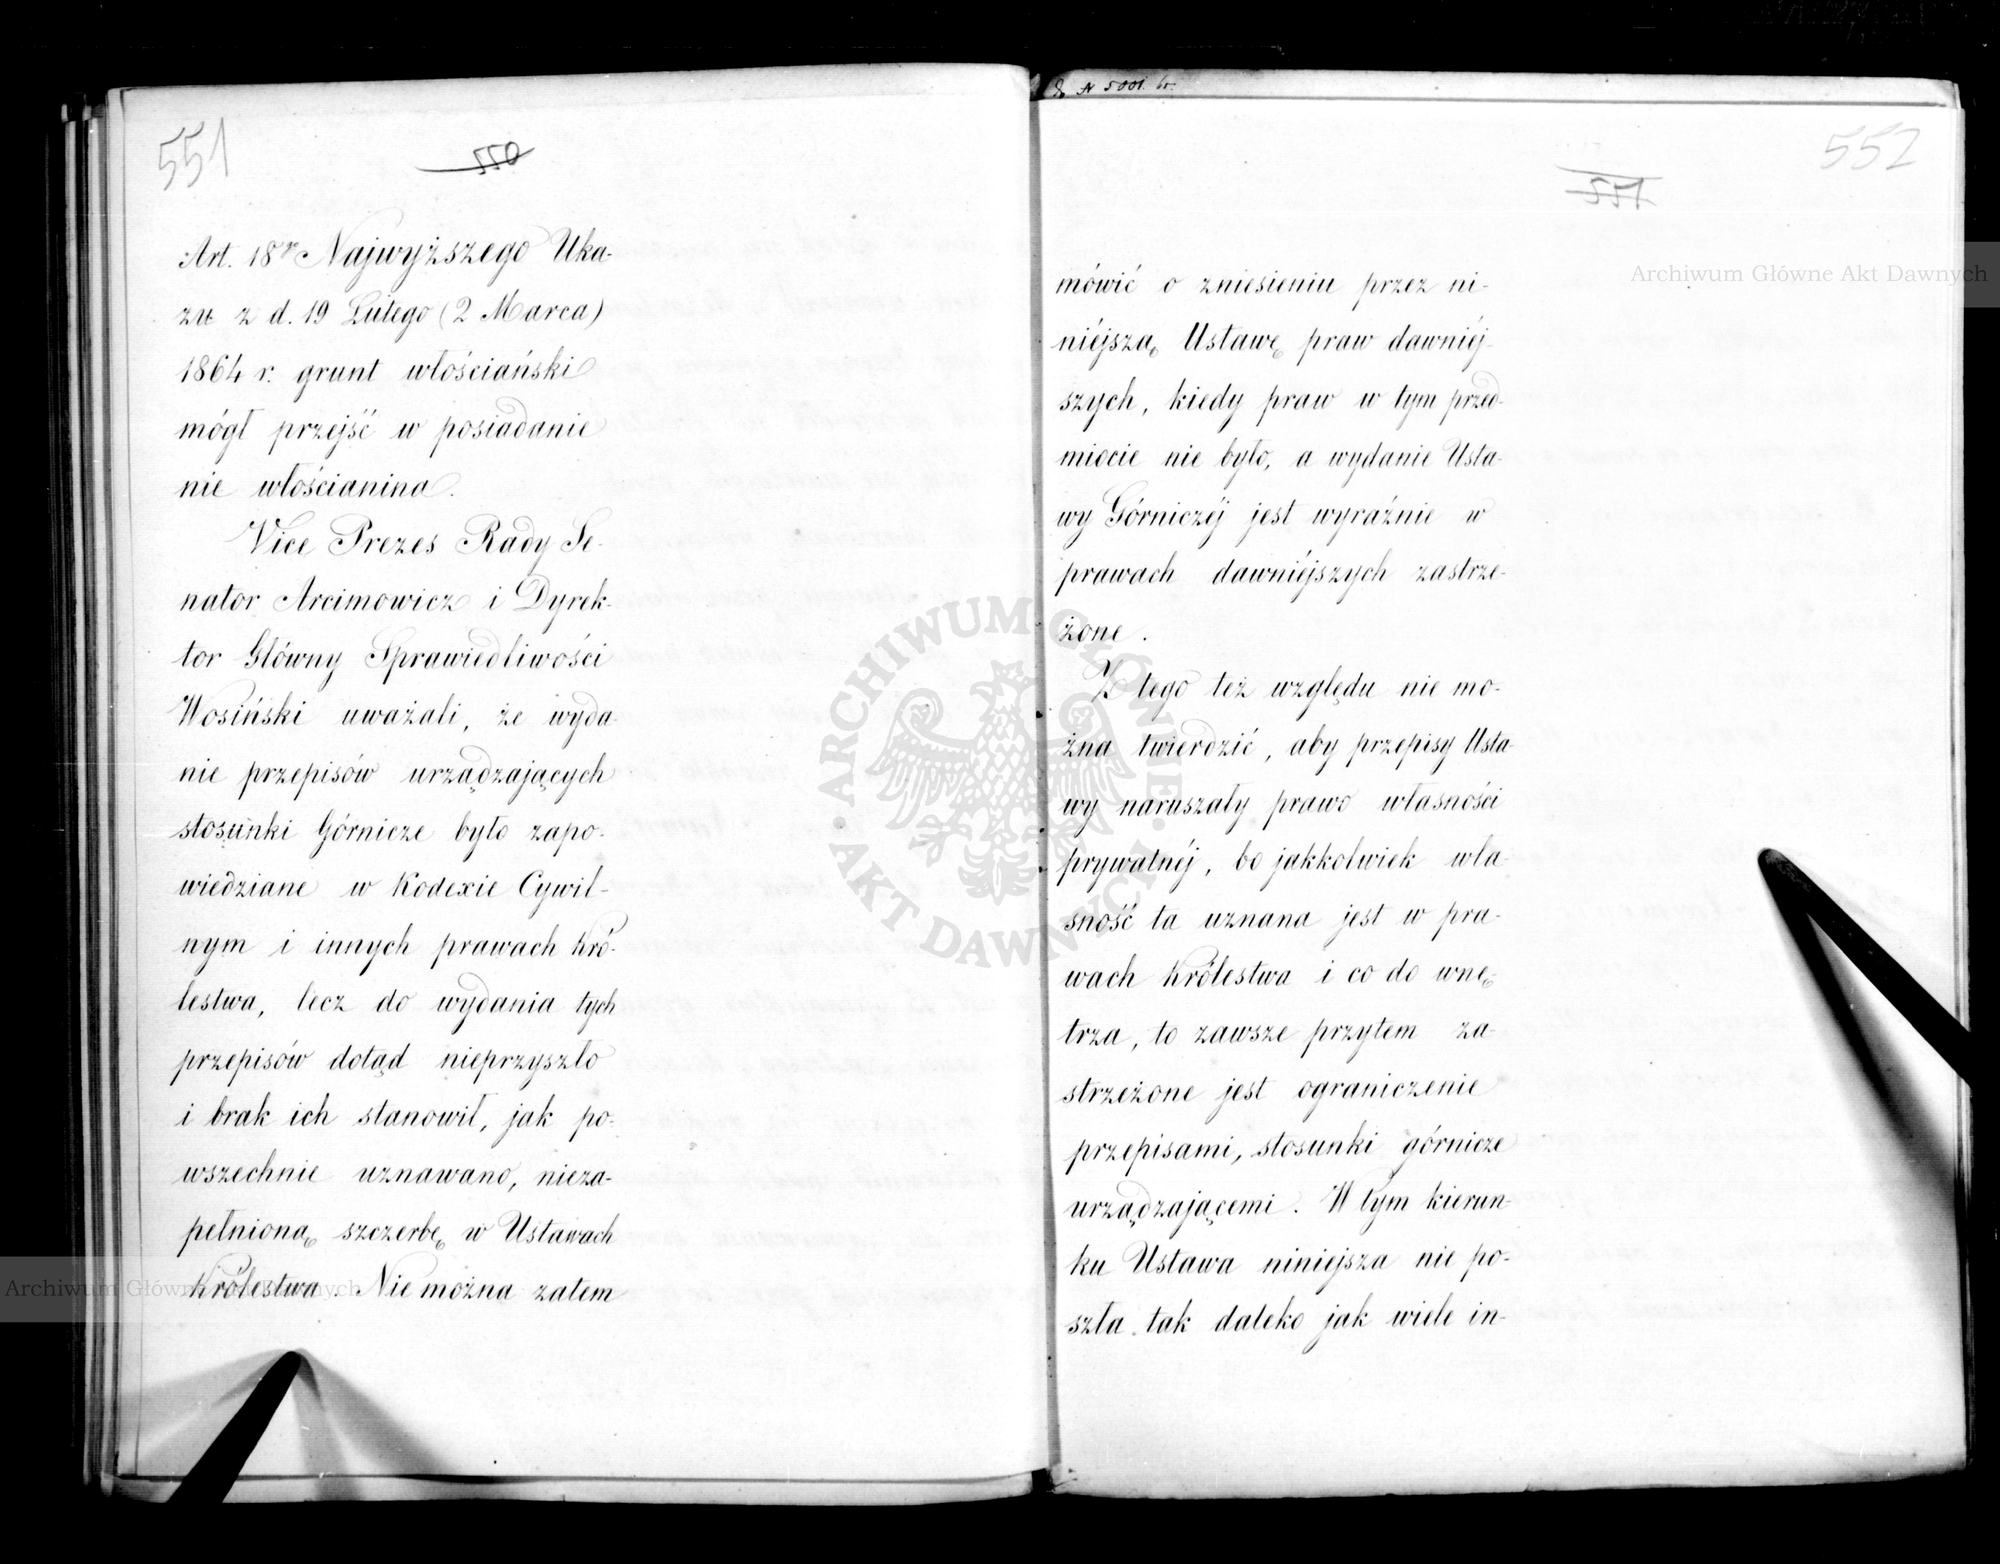 551
550
Art. 18º Najwyższego Uka-
zu z d. 19 Lutego (2 Marca)
1864 r. grunt włościański
mógł przejść w posiadanie
nie włościanina.
Vice Prezes Rady Se-
nator Arcimowicz i Dyrek-
tor Główny Sprawiedliwości
Wosiński uważali, że wyda
nie przepisów urządzających
stosunki Górnicze było zapo-
wiedziane w Kodexie Cywil-
nym i innych prawach Kró-
lestwa, lecz do wydania tych
przepisów dotąd nieprzyszło
i brak ich stanowił, jak po-
wszechnie uznawano, nieza-
pełnioną szczerbę w Ustawach
Królestwa. Nie można zatem
Archiwum Główne Akt Dawnych
№ 5001.
552
551
Archiwum Główne Akt Dawnych
mówić o zniesieniu przez ni-
niéjszą Ustawę praw dawniéj-
szych, kiedy praw w tym przed-
miocie nie było, a wydanie Usta-
wy Górniczéj jest wyraźnie w
prawach dawniéjszych zastrze-
żone.
Z tego też względu nie mo-
żna twierdzić, aby przepisy Usta-
wy naruszały prawo własności
prywatnéj, bo jakkolwiek wła-
sność ta uznana jest w pra-
wach Królestwa i co do wnę-
trza, to zawsze przytem za-
strzeżone jest ograniczenie
przepisami, stosunki górnicze
urządzającemi. W tym kierun-
ku Ustawa niniejsza nie po-
szła tak daleko jak wiele in-
ARCHIWUM GŁÓWNE AKT DAWNYCH